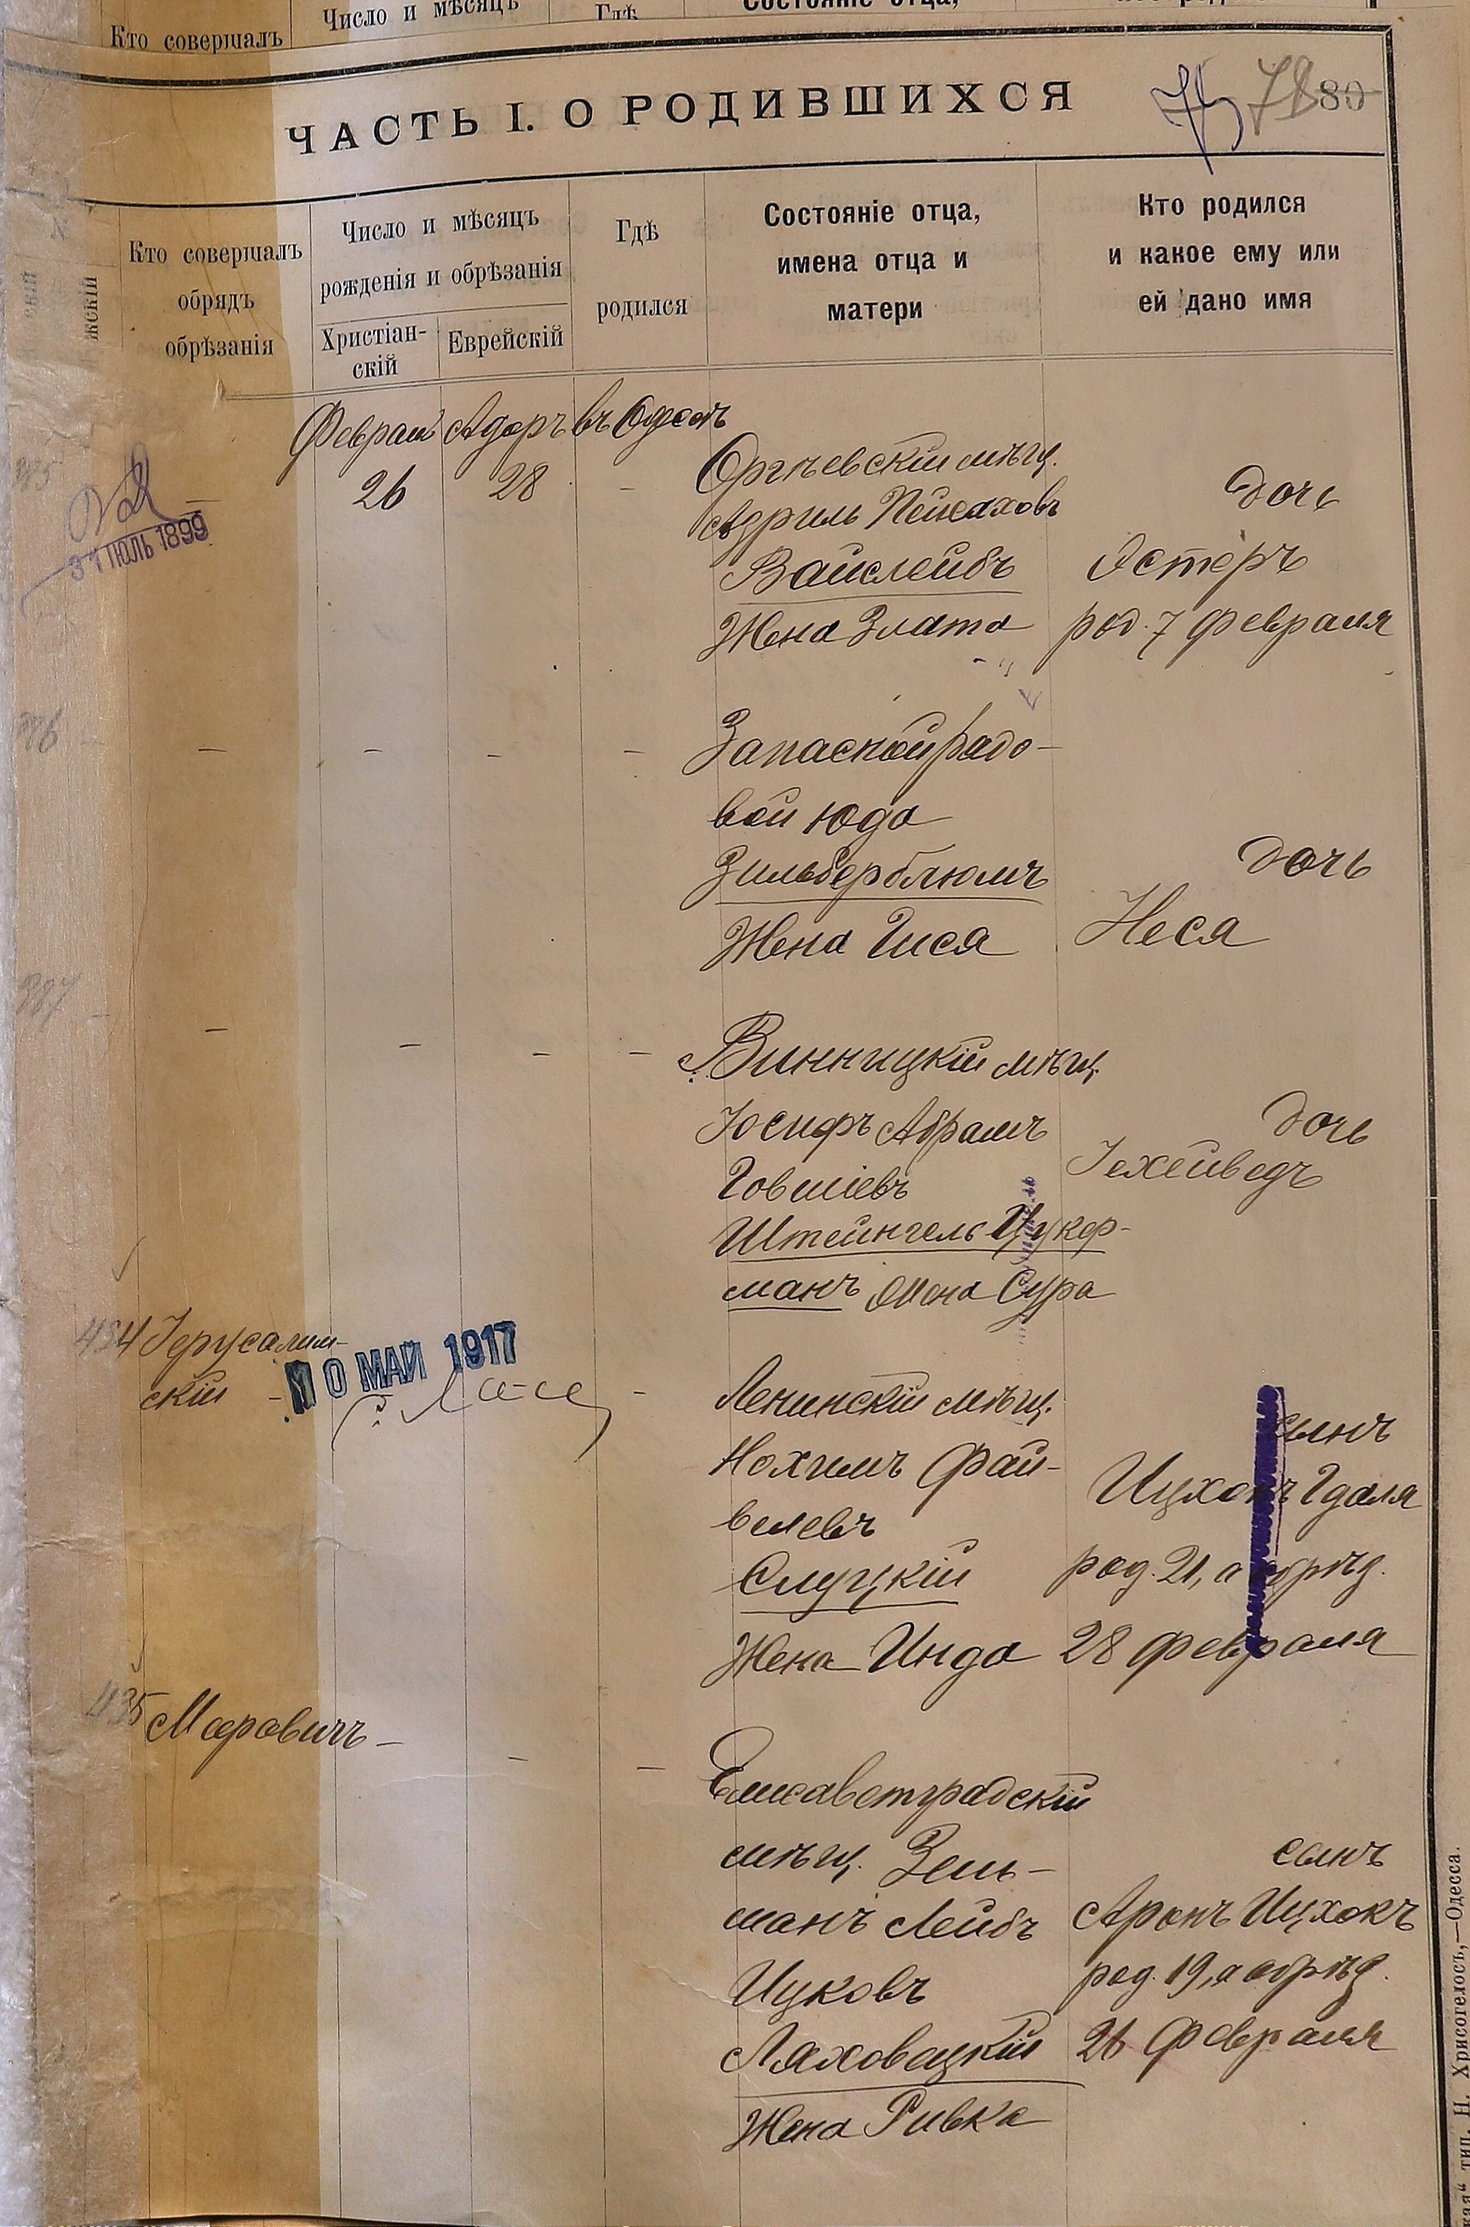 Кто совершалъ
Число и мѣсяцъ
Гдѣ
Состояніе отца,
ЧАСТЬ I. О РОДИВШИХСЯ
80
Кто совершалъ
обрядъ
обрѣзанія
Число и мѣсяцъ
рожденія и обрѣзанія
Христіан-
скій
Еврейскій
Гдѣ
родился
Состояніе отца,
имена отца и
матери
Кто родился
и какое ему или
ей дано имя
385
31 ІЮЛЬ 1899
Адаръ въ
26
28
-
Оргѣевскій мѣщ.
Азриль Пейсаховъ
Вайслейбъ
Жена Злата
дочь
Эстеръ
род. 7 февраля
386
- - - -
Запасной рядо-
вой Юда
Зильберблюмъ
Жена Гися
дочь
Неся
387
- - - -
Винницкій мѣщ.
Іосифъ Абрамъ
Говшіевъ
Штейнгель Цукер-
манъ Жена Сура
дочь
Іехейведъ
434
Іерусалим-
скій -
10 МАЙ 1917
Ленинскій мѣщ.
Нохимъ Фай-
велевъ
Слуцкій
Жена Инда
сынъ
Ицхокъ Гдаля
род. 21, а обрѣз.
28 февраля
435
Маровичъ -
- -
Елисаветградскій
мѣщ. Зель-
манъ Лейбъ
Ицковъ
Ляховецкій
Жена Ривка
сынъ
Аронъ Ицхокъ
род. 19, а обрѣз.
26 февраля
тип. Н. Хрисогелосъ,—Одесса.